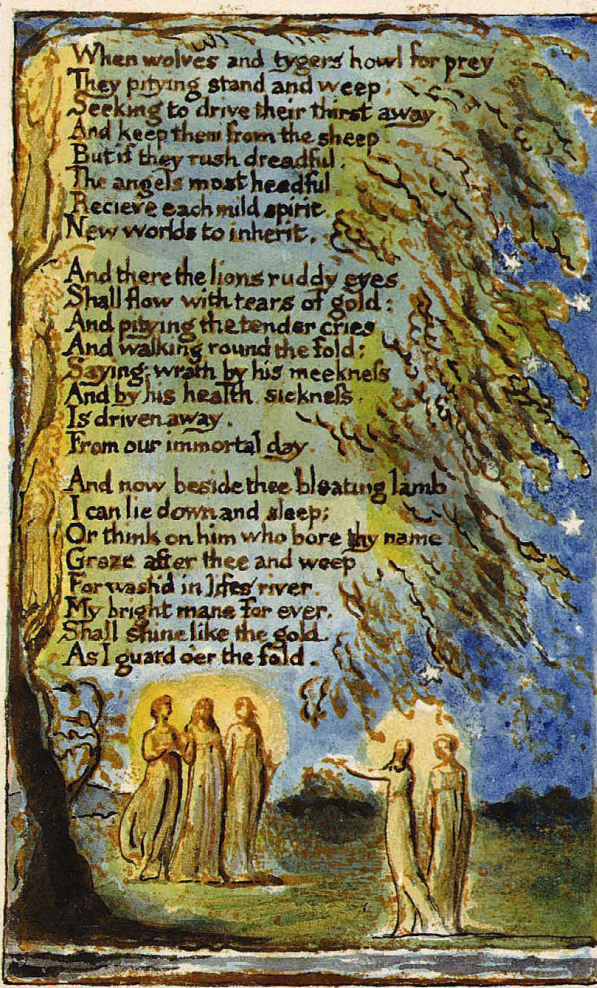 When wolves and tygers howl for prey
They pitying stand and weep;
Seeking to drive their thirst away
And keep them from the sheep
But if they rush dreadful;
The angels most heedful
Recieve each mild spirit.
New worlds to inherit.
And there the lions ruddy eyes
Shall flow with tears of gold:
And pitying the tender cries
And walking round the fold:
Saying: wrath by his meekneſs
And by his health, sickneſs.
Is driven away.
From our immortal day.
And now beside thee bleating lamb
I can lie down and sleep;
Or think on him who bore thy name
Graze after thee and weep
For wash'd in lifes river.
My bright mane for ever.
Shall shine like the gold.
As I guard oer the fold.